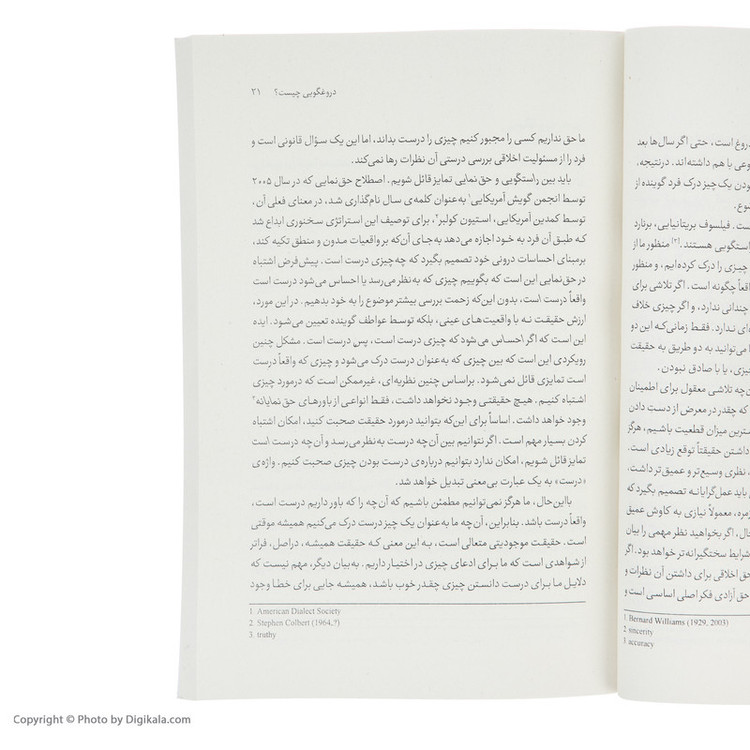 دروغگویی چیست؟ ۲۱
ما حق نداریم کسی را مجبور کنیم چیزی را درست بداند، اما این یک سؤال قانونی است و
فرد را از مسئولیت اخلاقی بررسی درستی آن نظرات رها نمی‌کند.
باید بین راستگویی و حق نمایی تمایز قائل شویم. اصطلاح حق‌نمایی که در سال ۲۰۰۵
توسط انجمن گویش آمریکایی۱ به‌عنوان کلمه‌ی سال نام‌گذاری شد، در معنای فعلی آن،
توسط کمدین آمریکایی، استیون کولبر۲، برای توصیف این استراتژی سخنوری ابداع شد
که طبق آن فرد به خود اجازه می‌دهد به‌جای آن‌که بر واقعیات مدون و منطق تکیه کند،
برمبنای احساسات درونی خود تصمیم بگیرد که چه‌چیزی درست است. پیش‌فرض اشتباه
در حق‌نمایی این است که بگوییم چیزی که به‌نظر می‌رسد یا احساس می‌شود درست است
واقعاً درست است، بدون این‌که زحمت بررسی بیشتر موضوع را به خود بدهیم. در این مورد،
ارزش حقیقت نه با واقعیت‌های عینی، بلکه توسط عواطف گوینده تعیین می‌شود. ایده
این است که اگر احساس می‌شود که چیزی درست است، پس درست است. مشکل چنین
رویکردی این است که بین چیزی که به‌عنوان درست درک می‌شود و چیزی که واقعاً درست
است تمایزی قائل نمی‌شود. براساس چنین نظریه‌ای، غیرممکن است که درمورد چیزی
اشتباه کنیم. هیچ حقیقتی وجود نخواهد داشت، فقط انواعی از باورهای حق نمایانه۳
وجود خواهد داشت. اساساً برای این‌که بتوانید درمورد حقیقت صحبت کنید، امکان اشتباه
کردن بسیار مهم است. اگر نتوانیم بین آن‌چه درست به‌نظر می‌رسد و آن‌چه درست است
تمایز قائل شویم، امکان ندارد بتوانیم درباره‌ی درست بودن چیزی صحبت کنیم. واژه‌ی
«درست» به یک عبارت بی‌معنی تبدیل خواهد شد.
بااین‌حال، ما هرگز نمی‌توانیم مطمئن باشیم که آن‌چه را که باور داریم درست است،
واقعاً درست باشد. بنابراین، آن‌چه ما به‌عنوان یک چیز درست درک می‌کنیم همیشه موقتی
است. حقیقت موجودیتی متعالی است، به این معنی که حقیقت همیشه، دراصل، فراتر
از شواهدی است که ما برای ادعای چیزی در اختیار داریم. به‌بیان دیگر، مهم نیست که
دلایل ما برای درست دانستن چیزی چقدر خوب باشد، همیشه جایی برای خطا وجود
1. American Dialect Society
2. Stephen Colbert (1964,?)
3. truthy
دروغ است، حتی اگر سال‌ها بعد
وعی با هم داشته‌اند. درنتیجه،
ودن یک چیز درک فرد گوینده از
ضوع.
ست. فیلسوف بریتانیایی، برنارد
استگویی هستند.[۲] منظور ما از
چیزی را درک کرده‌ایم، و منظور
اقعاً چگونه است. اگر تلاشی برای
چندانی ندارد، و اگر چیزی خلاف
ای ندارد. فقط زمانی‌که این دو
ا می‌توانید به دو طریق به حقیقت
چیزی، یا با صادق نبودن.
ن‌چه تلاشی معقول برای اطمینان
که چقدر در معرض از دست دادن
شترین میزان قطعیت باشیم، هرگز
داشتن حقیقتاً توقع زیادی است.
، نظری وسیع‌تر و عمیق‌تر داشت،
باید عمل‌گرایانه تصمیم بگیرد که
زمره، معمولاً نیازی به کاوش عمیق
حال، اگر بخواهید نظر مهمی را بیان
شرایط سختگیرانه‌تر خواهد بود. اگر
حق اخلاقی برای داشتن آن نظرات و
حق آزادی فکر اصلی اساسی است و
1. Bernard Williams (1929, 2003)
2. sincerity
3. accuracy
Copyright © Photo by Digikala.com